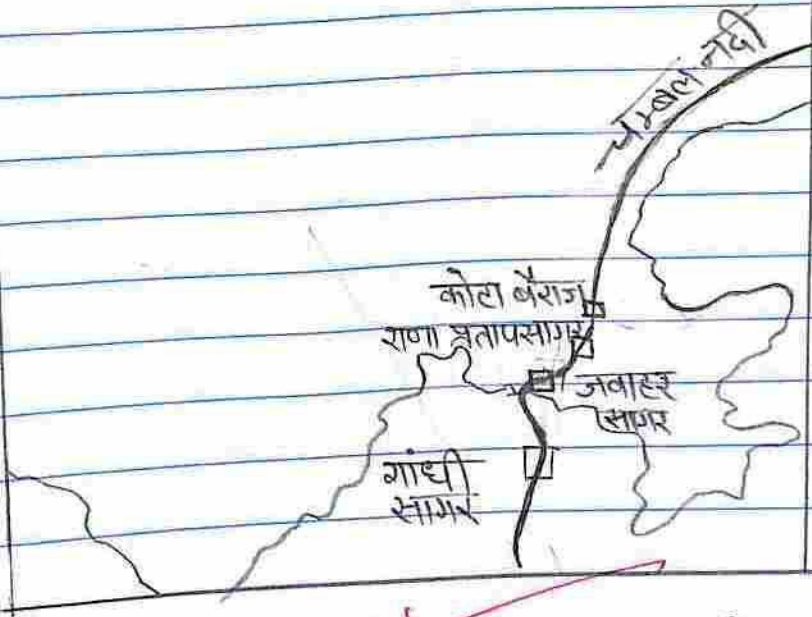 चम्बल नदी
कोटा बैराज
राणा प्रतापसागर
जवाहर
सागर
गांधी
सागर